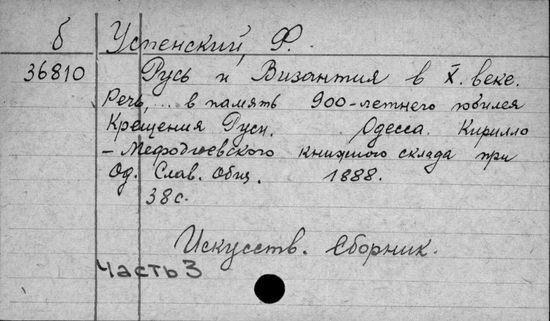 б Успенский, Ф.
36810 Русь и Византия в X. веке.
Речь,... в память 900-летнего юбилея
Крещения Руси. Одесса. Кирилло
-Мефодиевского книжного склада при
Од. Слав. Общ. 1888.
38 с.
Искусств. Сборник.
Часть 3